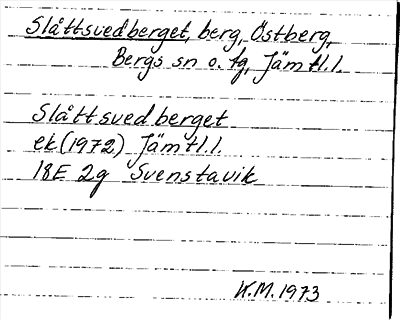 Slåttsvedberget, berg, Östberg,
Bergs sn o. tg, Jämtl.l.
Slåttsvedberget
ek (1972) Jämtl.l.
18E 2g Svenstavik
W.M. 1973